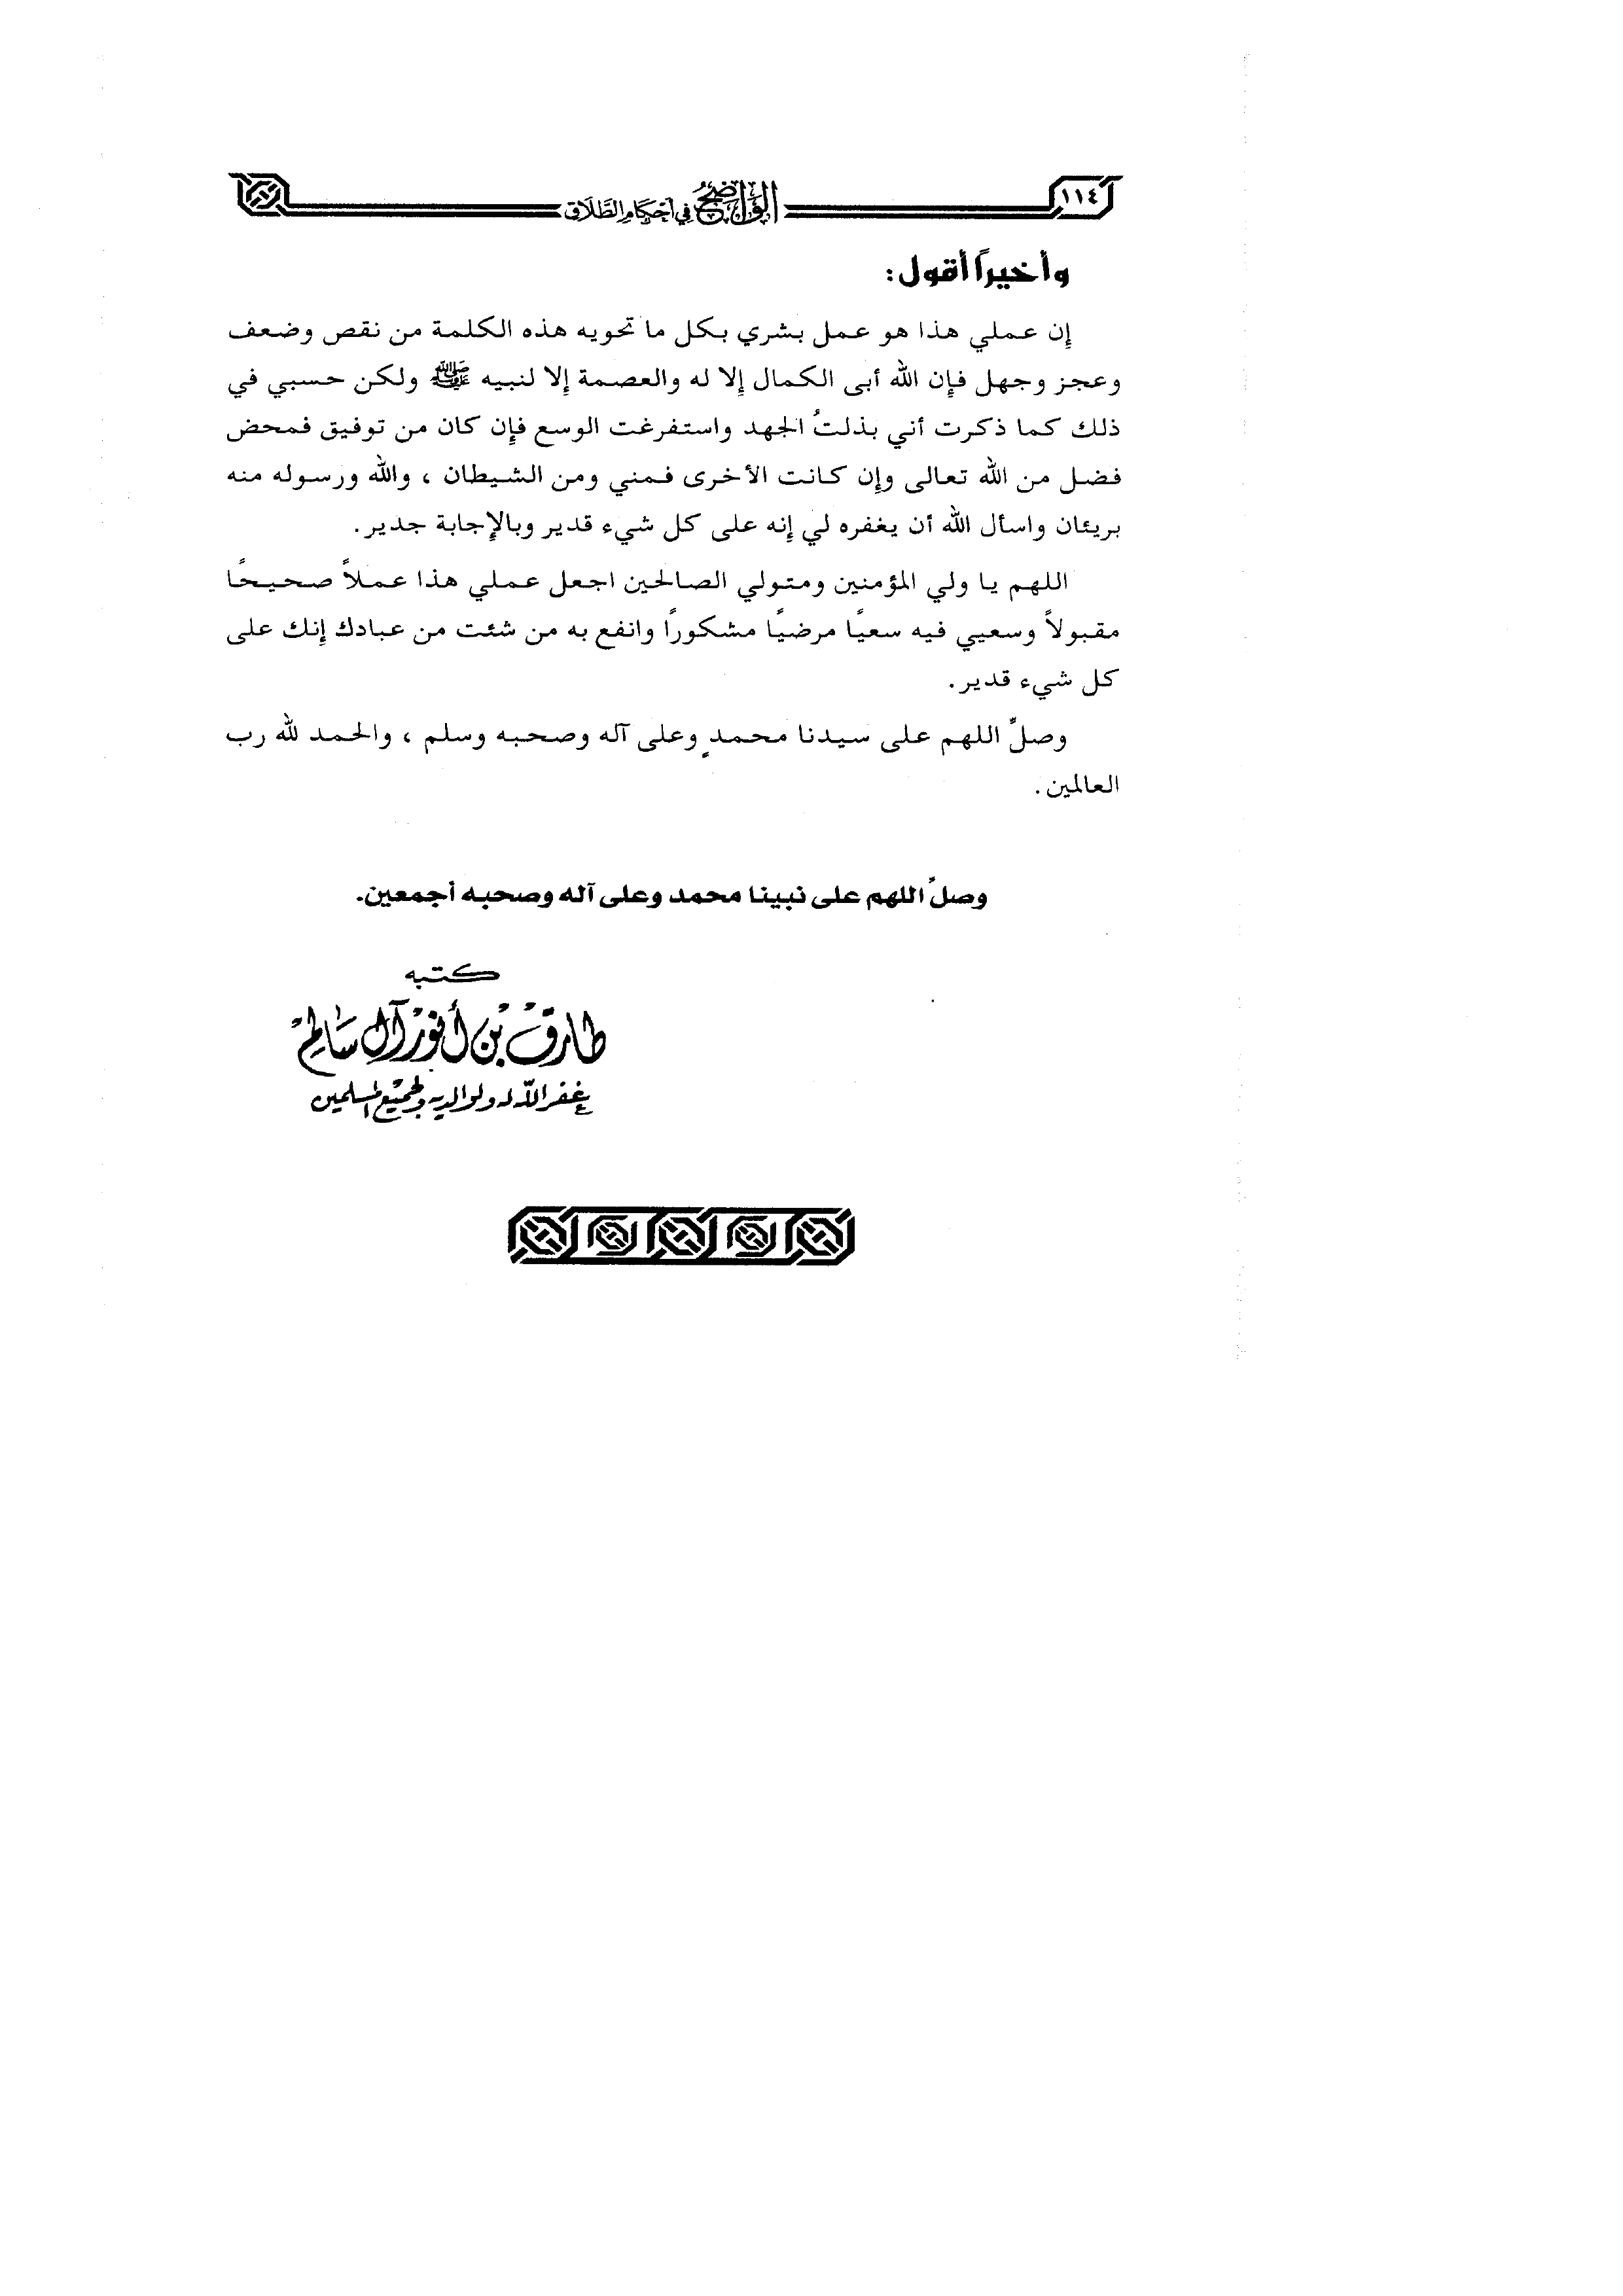 ١١٤
الواضح في أحكام الطلاق
وأخيراً أقول:
إن عملي هذا هو عمل بشري بكل ما تحويه هذه الكلمة من نقص وضعف
وعجز وجهل فإن الله أبى الكمال إلا له والعصمة إلا لنبيه ﷺ ولكن حسبي في
ذلك كما ذكرت أني بذلتُ الجهد واستفرغت الوسع فإن كان من توفيق فمحض
فضل من الله تعالى وإن كانت الأخرى فمني ومن الشيطان ، والله ورسوله منه
بريئان واسأل الله أن يغفره لي إنه على كل شيء قدير وبالإجابة جدير.
اللهم يا ولي المؤمنين ومتولي الصالحين اجعل عملي هذا عملاً صحيحًا
مقبولاً وسعيي فيه سعيًا مرضيًا مشكورًا وانفع به من شئت من عبادك إنك على
كل شيء قدير.
وصلِّ اللهم على سيدنا محمدٍ وعلى آله وصحبه وسلم ، والحمد لله رب
العالمين.
وصلِّ اللهم على نبينا محمد وعلى آله وصحبه أجمعين.
كتبه
طارق بن أنور آل سالم
غفر الله له ولوالديه ولجميع المسلمين